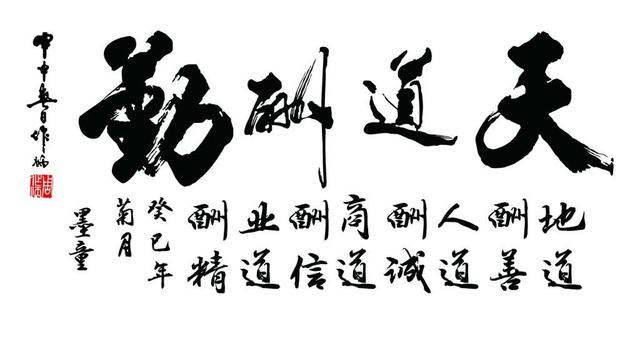 天道酬勤
地道
酬善
人道
酬诚
商道
酬信
业道
酬精
癸巳年
菊月
墨童